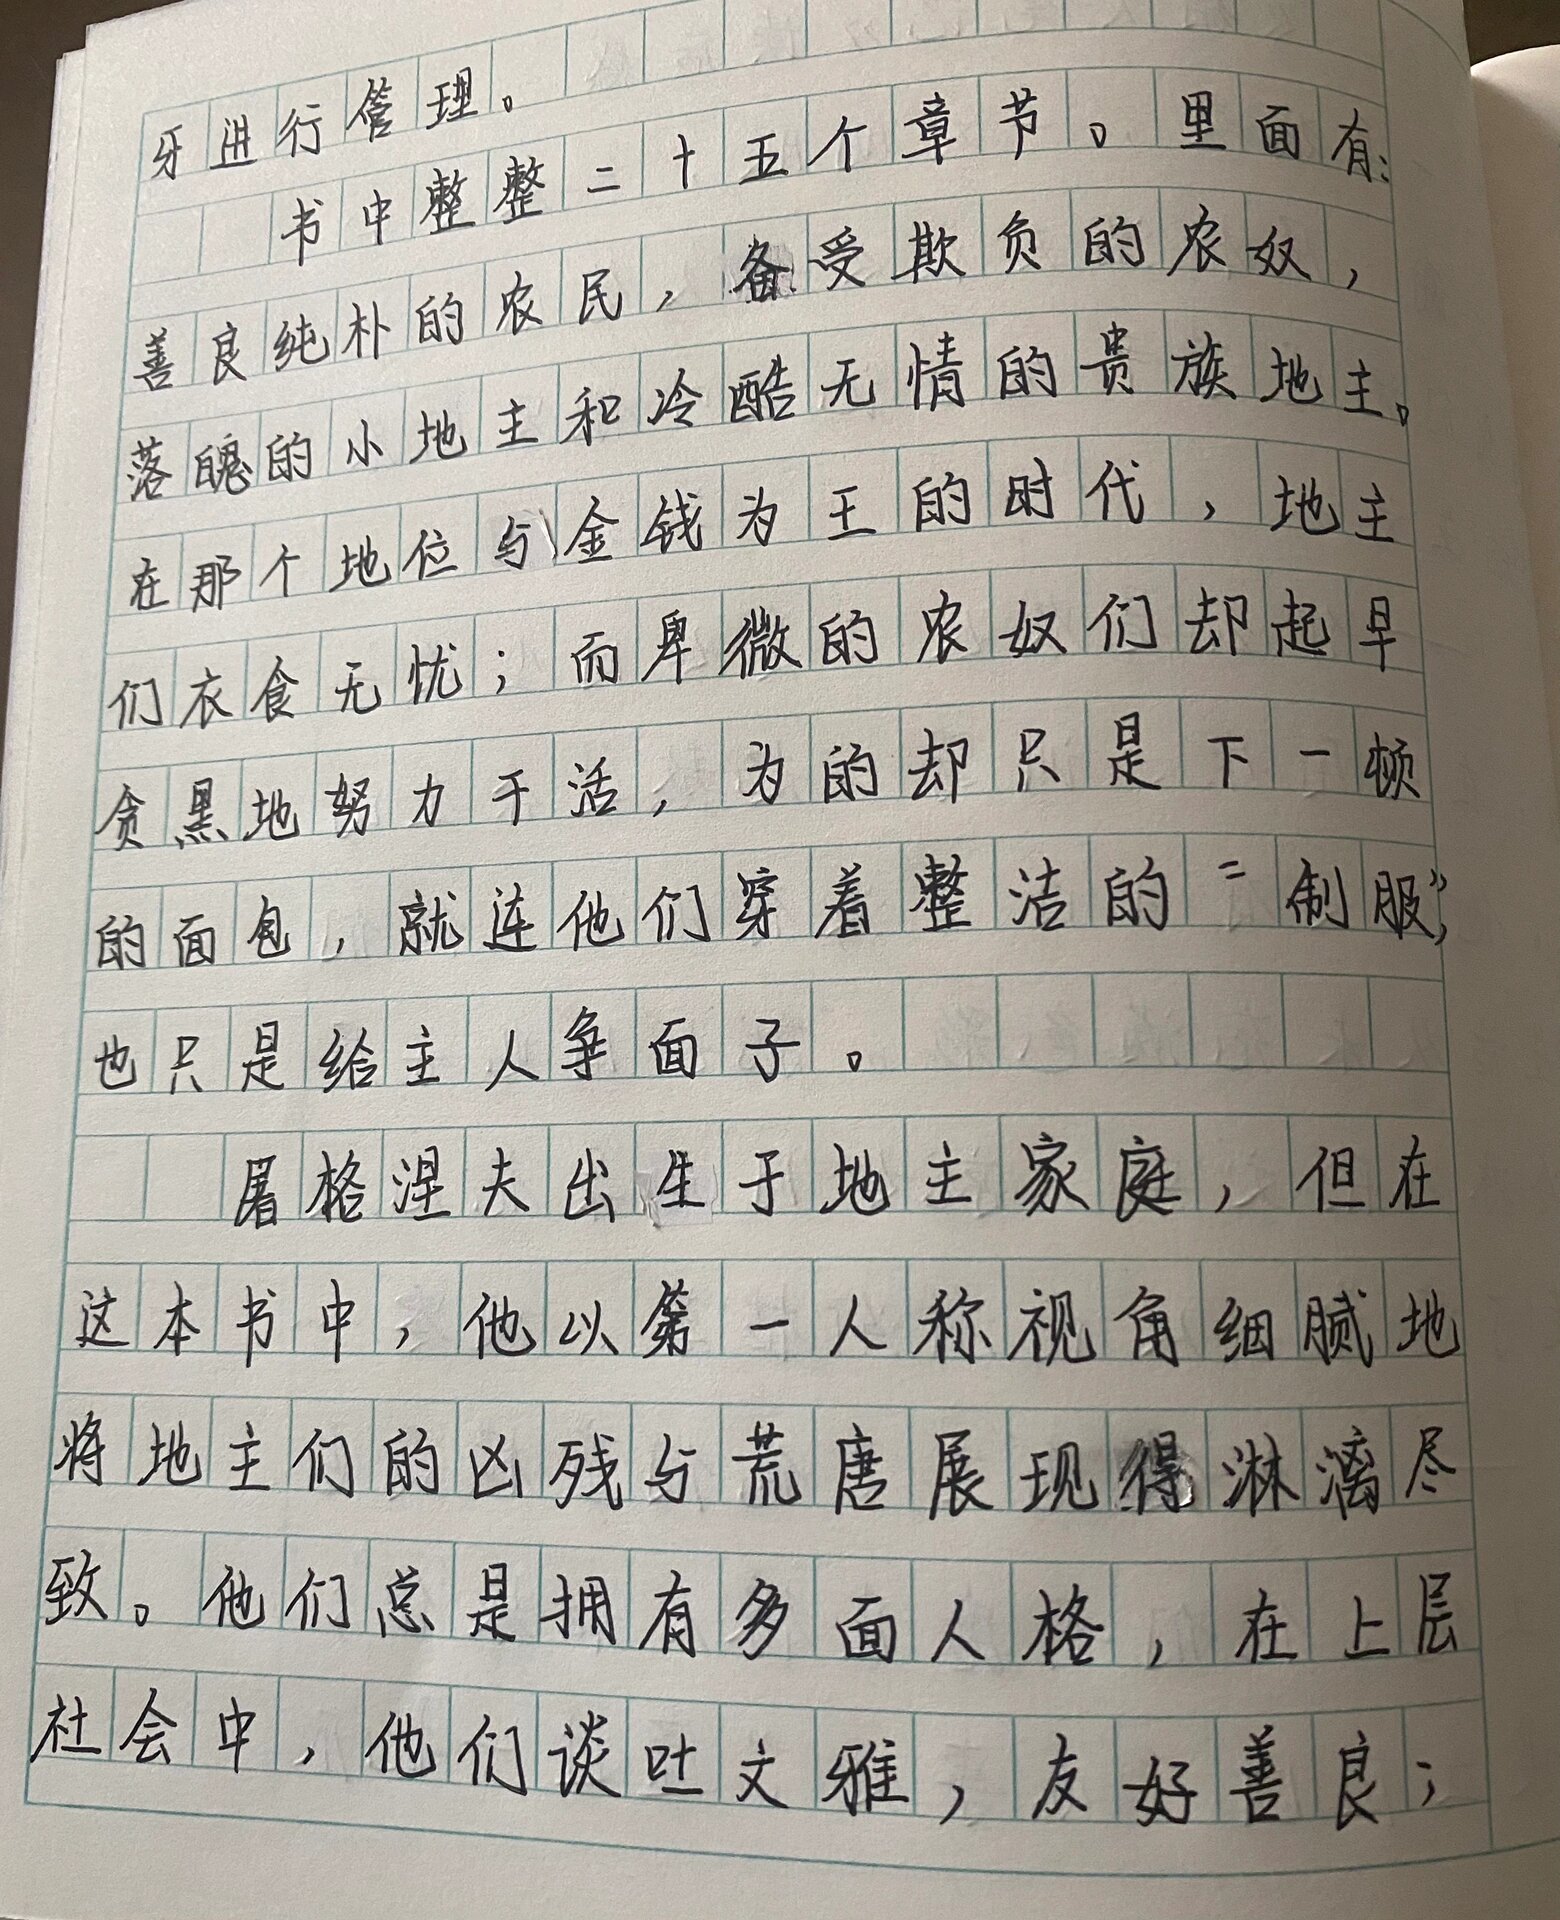 牙进行管理。
书中整整二十五个章节。里面有：
善良纯朴的农民，备受欺负的农奴，
落魄的小地主和冷酷无情的贵族地主。
在那个地位与金钱为王的时代，地主
们衣食无忧；而卑微的农奴们却起早
贪黑地努力干活，为的却只是下一顿
的面包，就连他们穿着整洁的“制服”，
也只是给主人争面子。
屠格涅夫出生于地主家庭，但在
这本书中，他以第一人称视角细腻地
将地主们的凶残与荒唐展现得淋漓尽
致。他们总是拥有多面人格，在上层
社会中，他们谈吐文雅，友好善良；